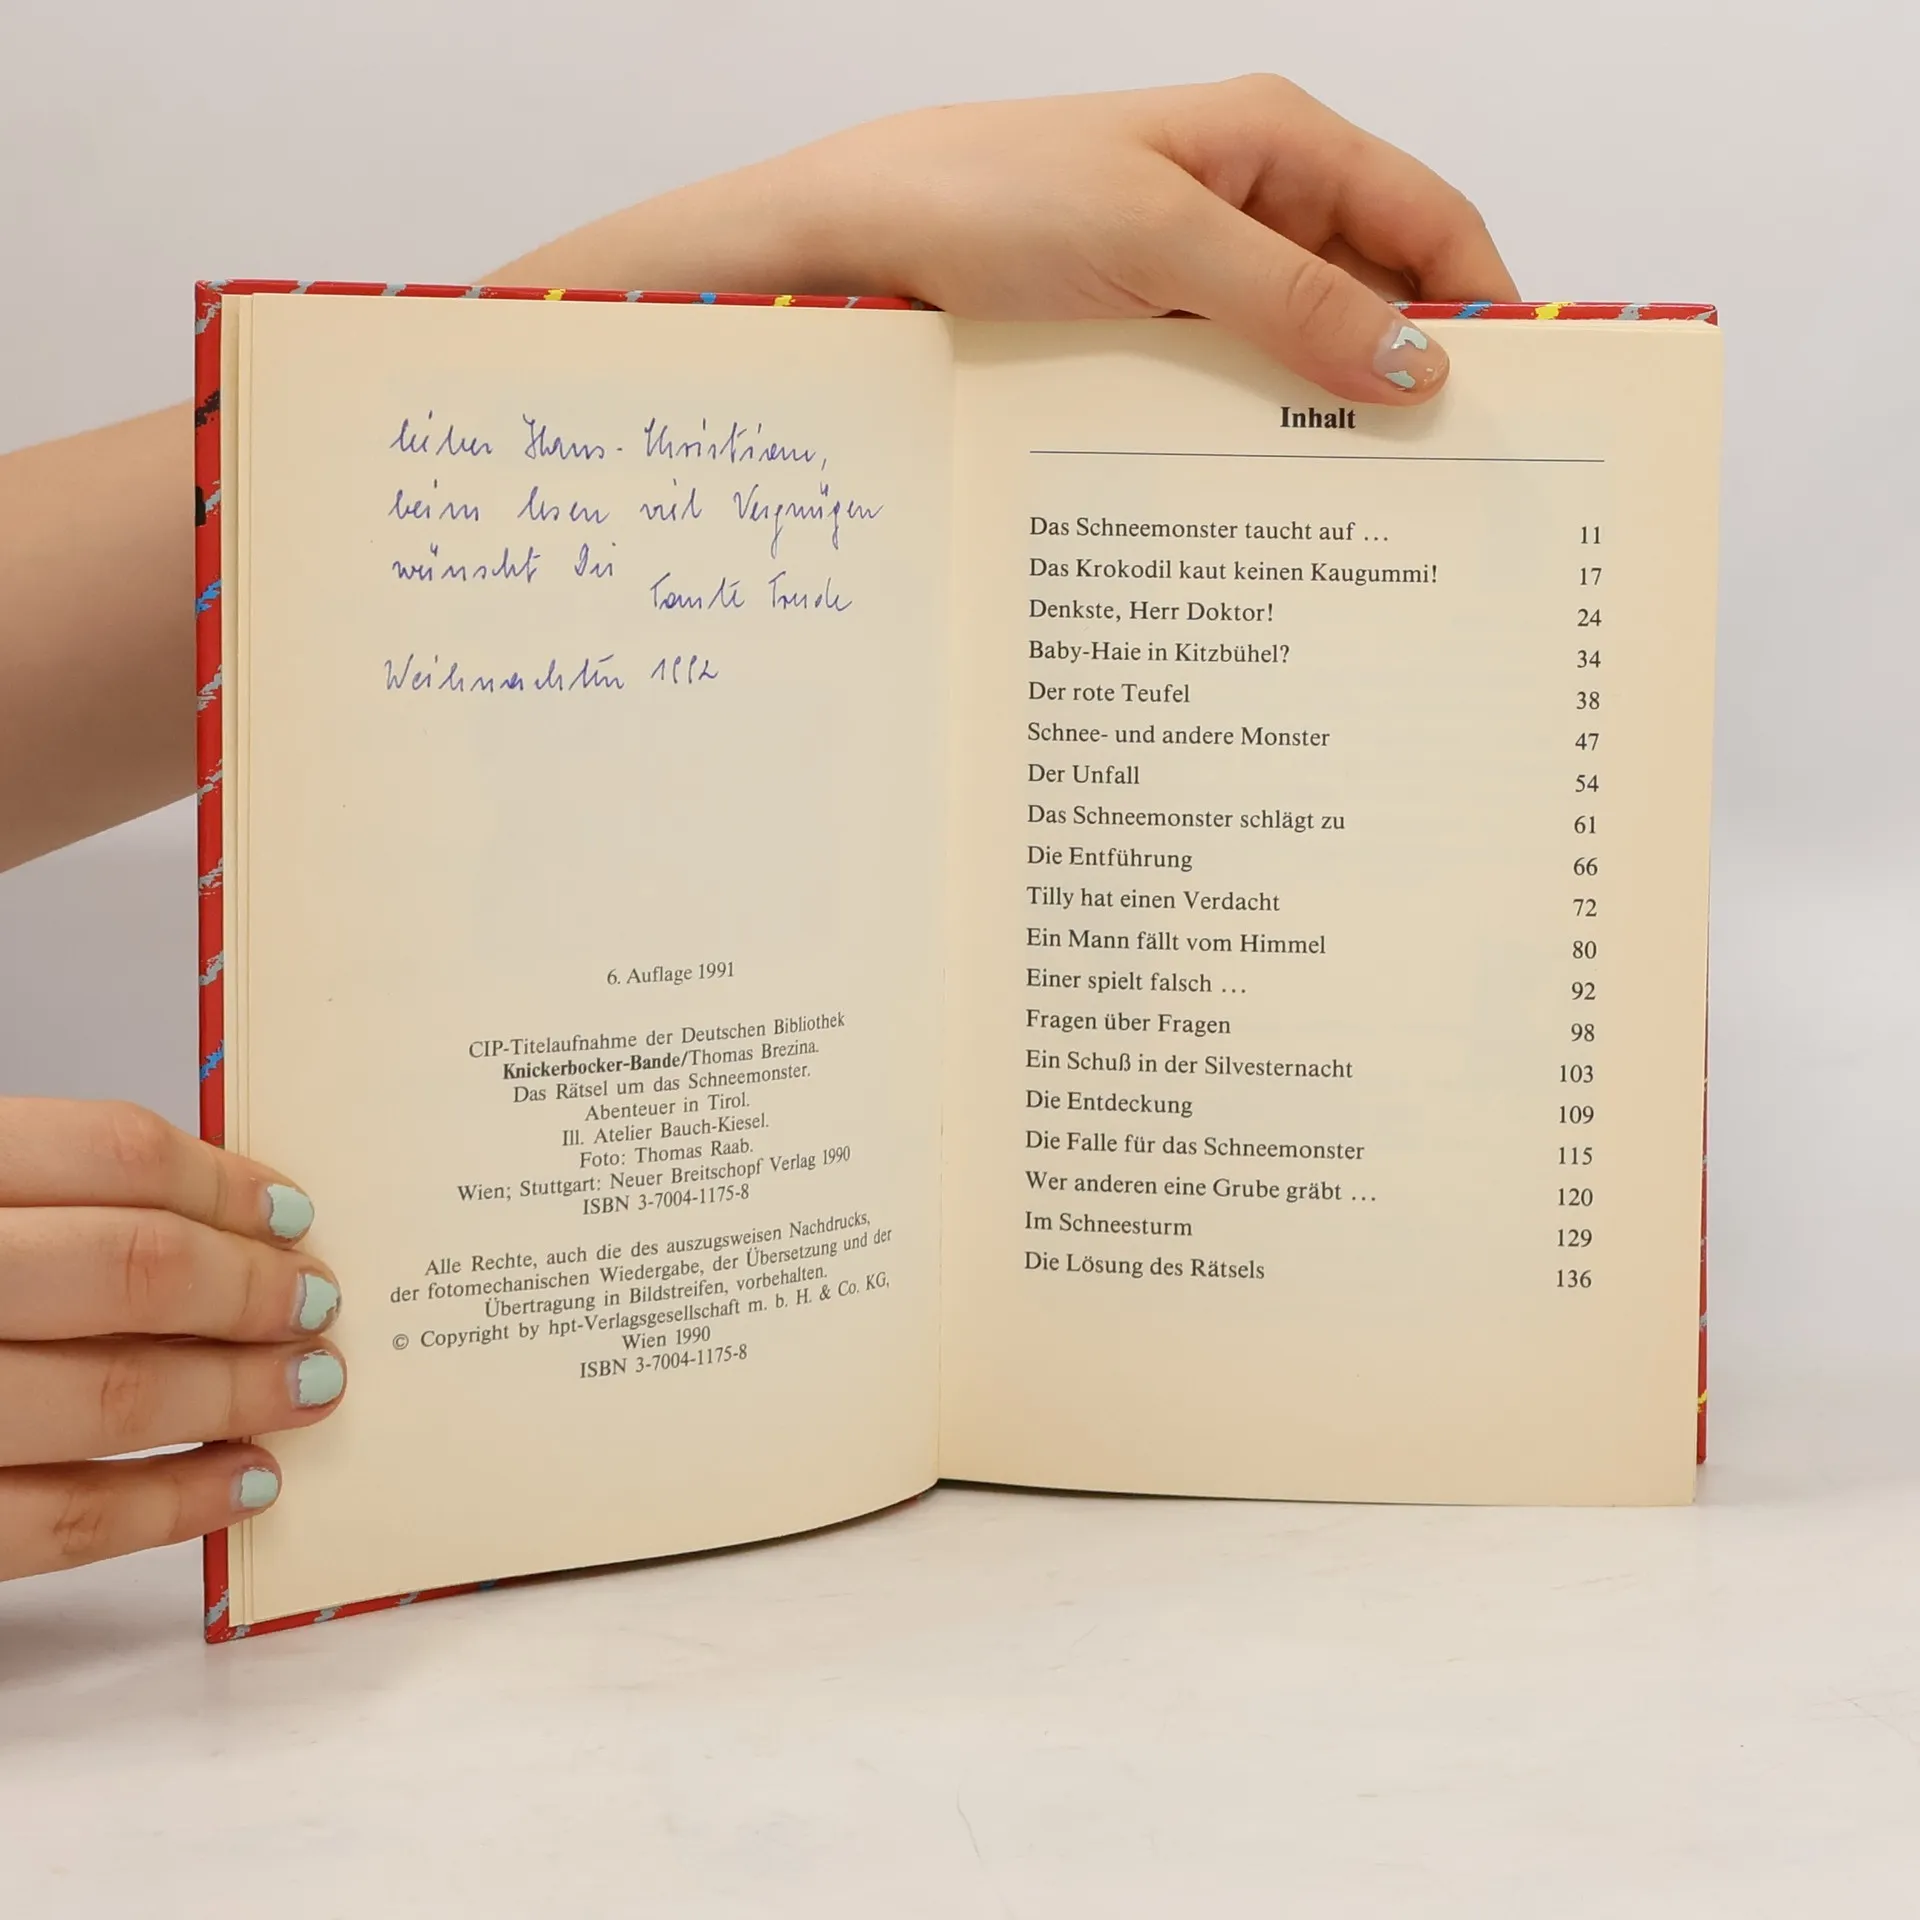 lieber Hans-Christian,
beim lesen viel Vergnügen
wünscht Dir
Tante Trude
Weihnachten 1992
6. Auflage 1991
CIP-Titelaufnahme der Deutschen Bibliothek
Knickerbocker-Bande/Thomas Brezina.
Das Rätsel um das Schneemonster.
Abenteuer in Tirol.
Ill. Atelier Bauch-Kiesel.
Foto: Thomas Raab.
Wien; Stuttgart: Neuer Breitschopf Verlag 1990
ISBN 3-7004-1175-8
Alle Rechte, auch die des auszugsweisen Nachdrucks,
der fotomechanischen Wiedergabe, der Übersetzung und der
Übertragung in Bildstreifen, vorbehalten.
© Copyright by hpt-Verlagsgesellschaft m. b. H. & Co. KG,
Wien 1990
ISBN 3-7004-1175-8
Inhalt
Das Schneemonster taucht auf ... 11
Das Krokodil kaut keinen Kaugummi! 17
Denkste, Herr Doktor! 24
Baby-Haie in Kitzbühel? 34
Der rote Teufel 38
Schnee- und andere Monster 47
Der Unfall 54
Das Schneemonster schlägt zu 61
Die Entführung 66
Tilly hat einen Verdacht 72
Ein Mann fällt vom Himmel 80
Einer spielt falsch ... 92
Fragen über Fragen 98
Ein Schuß in der Silvesternacht 103
Die Entdeckung 109
Die Falle für das Schneemonster 115
Wer anderen eine Grube gräbt ... 120
Im Schneesturm 129
Die Lösung des Rätsels 136